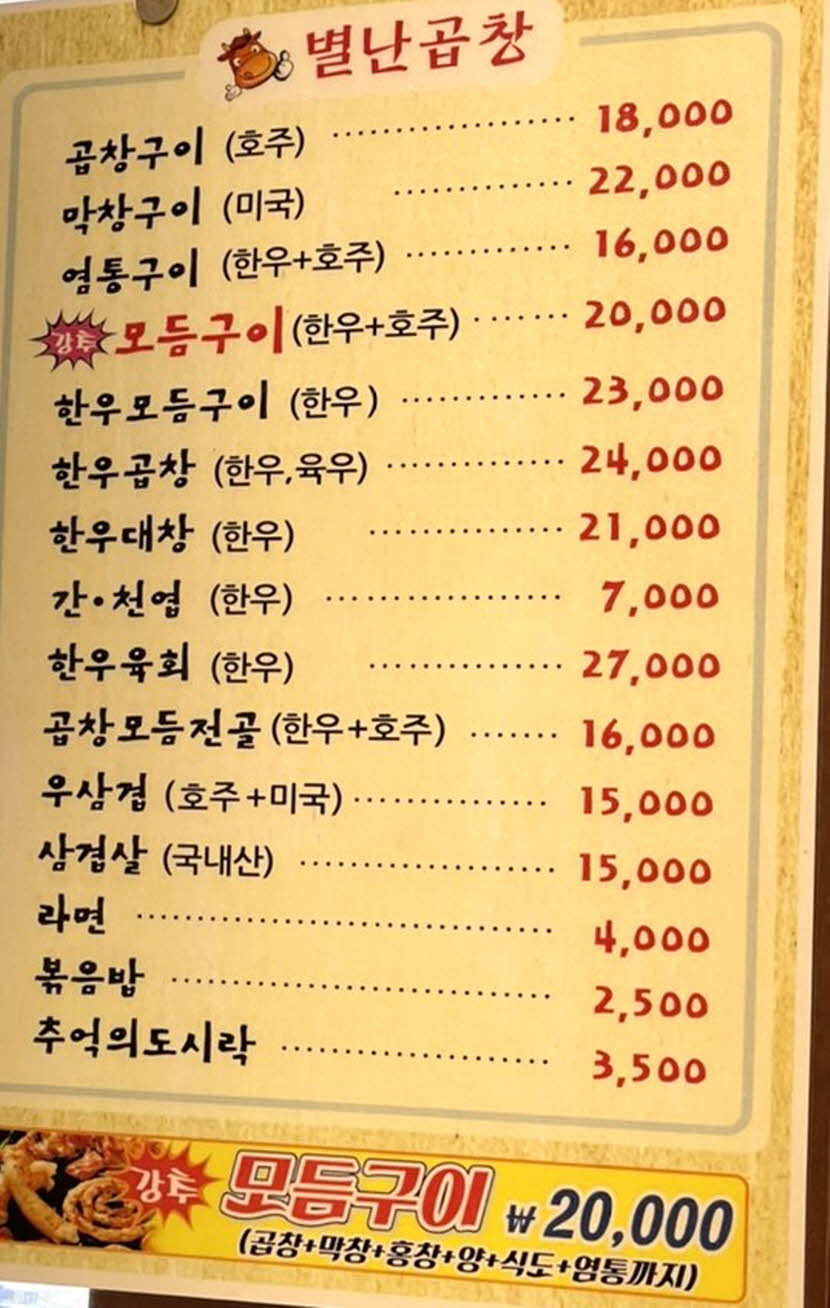 별난곱창
곱창구이 (호주) ··············· 18,000
막창구이 (미국) ··············· 22,000
염통구이 (한우+호주) ··············· 16,000
강추 모듬구이 (한우+호주) ······· 20,000
한우모듬구이 (한우) ··············· 23,000
한우곱창 (한우,육우) ··············· 24,000
한우대창 (한우) ··············· 21,000
간·천엽 (한우) ··············· 7,000
한우육회 (한우) ··············· 27,000
곱창모듬전골 (한우+호주) ······· 16,000
우삼겹 (호주+미국) ··············· 15,000
삼겹살 (국내산) ··············· 15,000
라면 ··············· 4,000
볶음밥 ··············· 2,500
추억의도시락 ··············· 3,500
강추 모듬구이 ₩20,000
(곱창+막창+홍창+양+식도+염통까지)